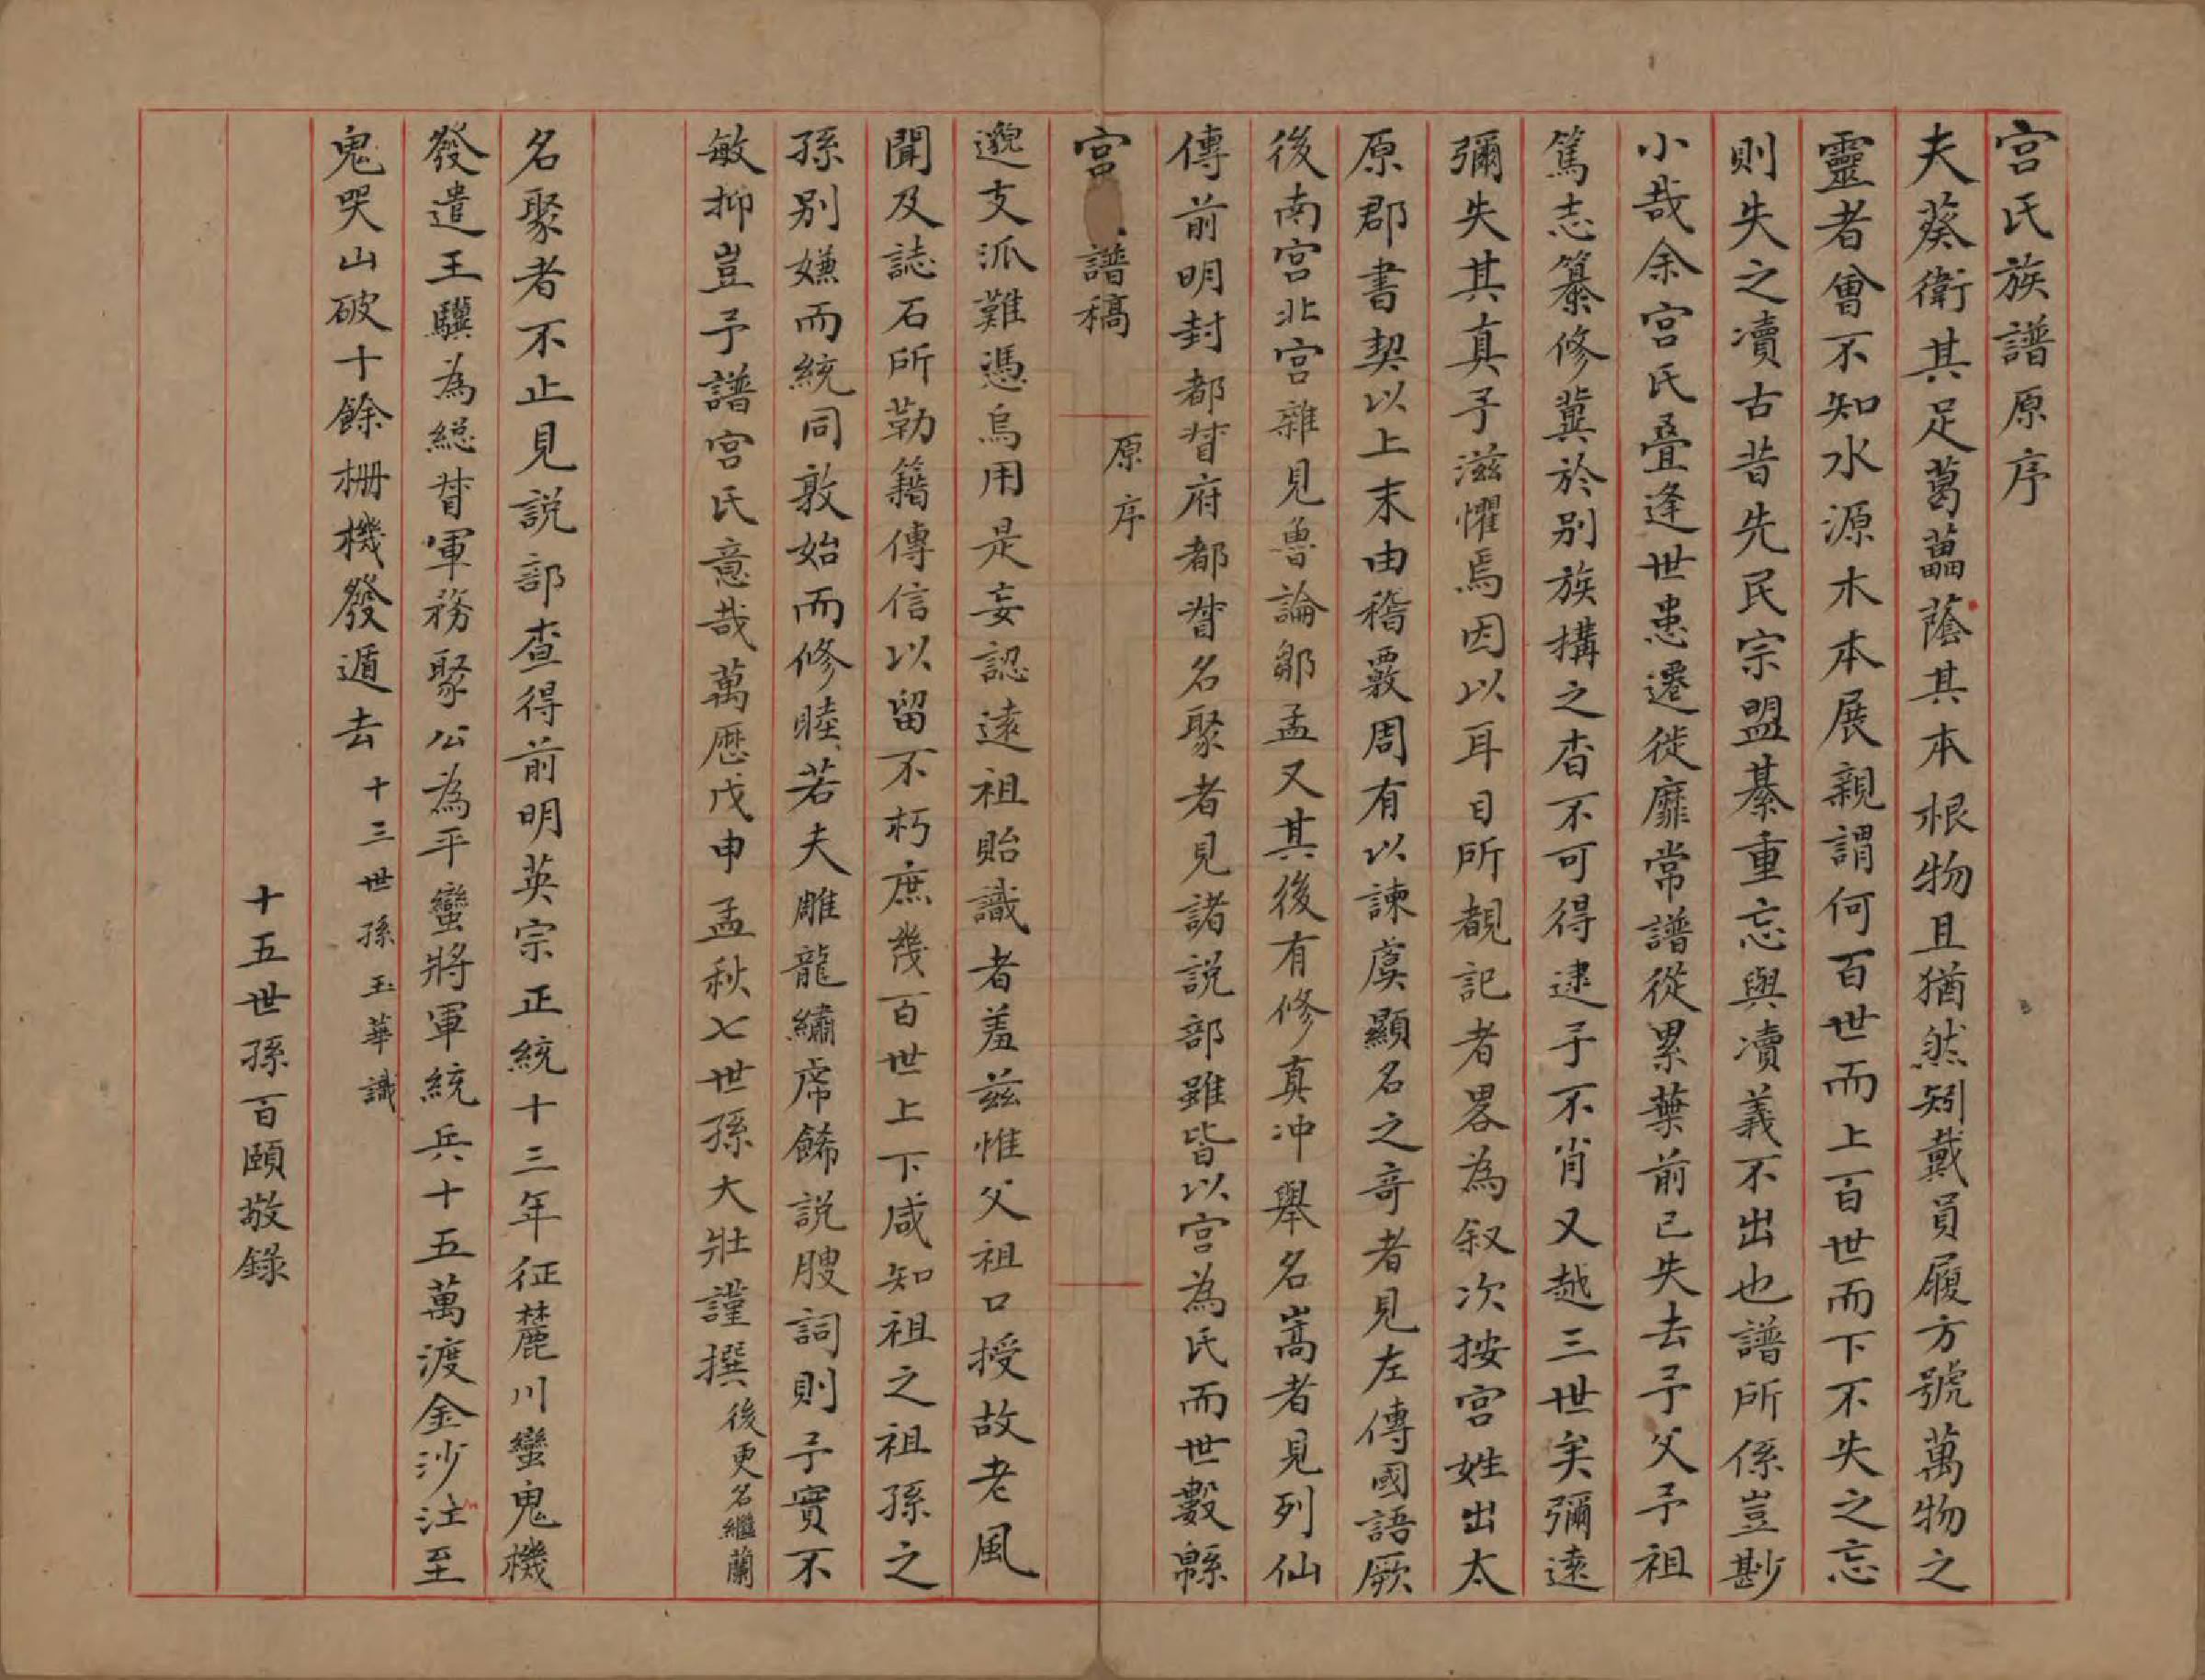 宮氏族譜原序
夫葵衛其足葛藟蔭其本根物且猶然矧戴員履方號萬物之
靈者曾不知水源木本展親謂何百世而上百世而下不失之忘
則失之瀆古昔先民宗盟綦重忘與瀆義不出也譜所係豈尠
小哉余宮氏叠逢世患遷徙靡常譜從累葉前已失去予父予祖
篤志纂修冀於別族搆之杳不可得逮予不肖又越三世矣彌遠
彌失其真予滋懼焉因以耳目所覩記者畧為叙次按宮姓出太
原郡書契以上末由稽覈周有以諫虞顯名之竒者見左傳國語厥
後南宮北宮雜見魯論鄒孟又其後有修真冲舉名嵩者見列仙
傳前明封都督府都督名聚者見諸説部雖皆以宮為氏而世數緜
宮 譜稿 原序
邈支派難憑烏用是妄認遠祖貽識者羞兹惟父祖口授故老風
聞及誌石所勒籍傳信以留不朽庶幾百世上下咸知祖之祖孫之
孫別嫌而統同敦始而修睦若夫雕龍繡虎餙説膄詞則予實不
敏抑豈予譜宮氏意哉萬歷戊申孟秋七世孫大壯謹撰後更名繼蘭
名聚者不止見説部查得前明英宗正統十三年征麓川蠻鬼機
發遣王驥為緫督軍務聚公為平蠻將軍統兵十五萬渡金沙江至
鬼哭山破十餘柵機發遁去十三世孫玉華識
十五世孫百頤敬錄